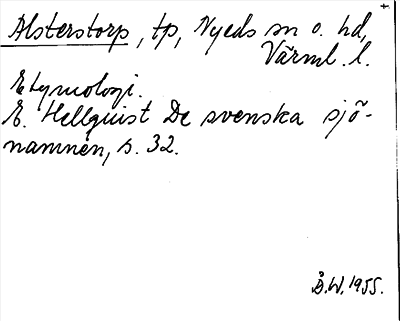 Alsterstorp, tp, Nyeds sn o. hd,
Värml. l.
Etymologi.
E. Hellquist De svenska sjö-
namnen, s. 32.
Å.W. 1955.